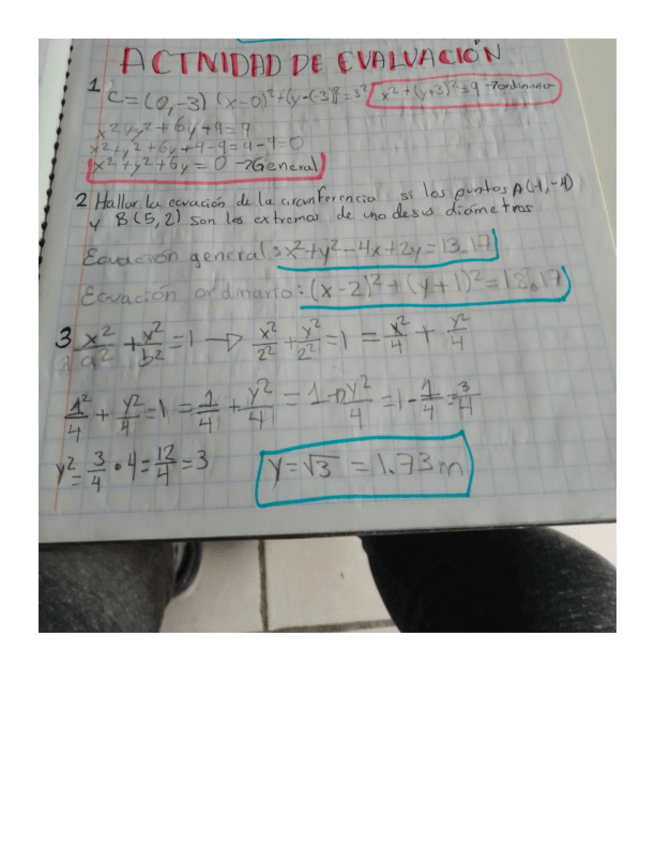 ACTNIDAD DE EVALUACIÓN
1 C=(0,-3) (x-0)²+(y-(-3)²=3² x²+(y+3)²=9→ordinaria
x²+y²+6y+9=9
x²+y²+6y+9-9=9-9=0
x²+y²+6y=0→General
2 Hallar la ecuación de la circunferencia si los puntos A(-1,-4)
y B(5,2) son los extremos de uno de sus diametros
Ecuación general: x²+y²-4x+2y=13.17
Ecuación ordinario: (x-2)²+(y+1)²=18.17
3 x²/a²+y²/b²=1→x²/2²+y²/2²=1=x²/4+y²/4
1²/4+y²/4=1=1/4+y²/4=1→y²/4=1-1/4=3/4
y²=3/4•4=12/4=3 y=√3=1.73m